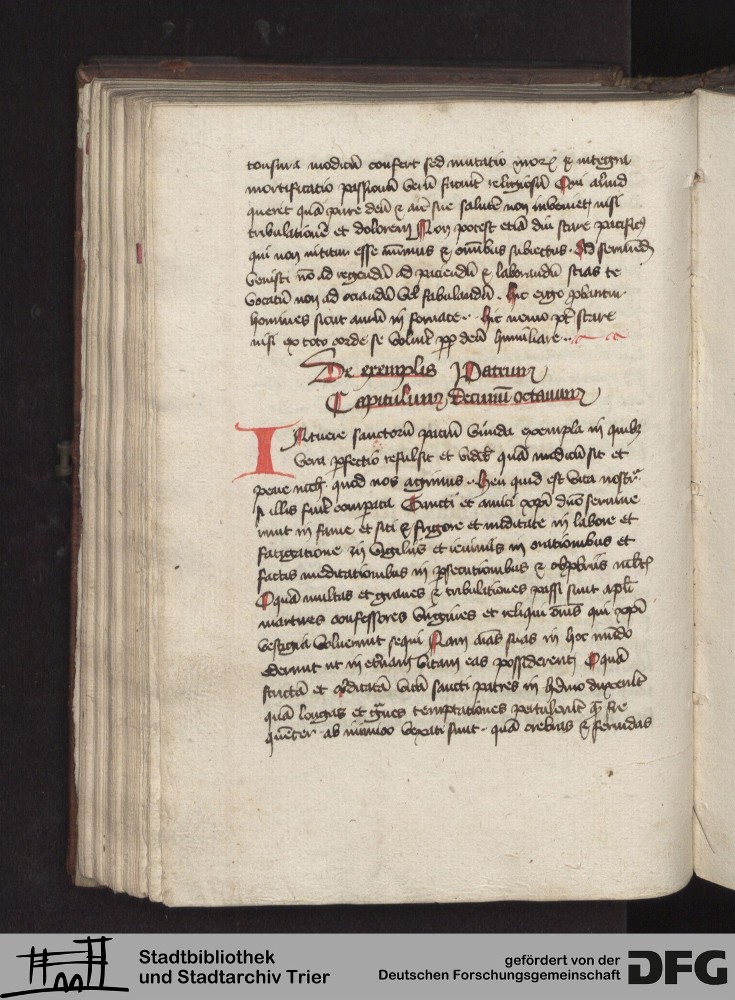 tonsura modicū confert sed mutatio morū et integra
mortificatio passionū verū faciūt religiosū Qui aliud
querit quā pure deū et aīe sue salutē non inveniet nisi
tribulationē et dolorem Non potest etiā diu stare pacificus
qui non nititur esse minimus et omnibus subiectus. Ad serviendū
venisti nō ad regendū ad paciendū et laborandū scias te
vocatū non ad ociandū vel fabulandū. Hic ergo probantur
homines sicut aurū in fornace. Hic nemo pōt stare
nisi ex toto corde se voluerit propter deū humiliare
De exemplis Patrum
Capitulum Decimū octauum
INtuere sanctorū patrū viuida exempla in quibus
vera perfectio refulsit et videbis quā modicū sit et
pene nichil quod nos agimus. Heu quid est vita nostra
si illis fuerit comparata Sancti et amici xpi dn̄o seruie
runt in fame et siti et frigore et nuditate in labore et
fatigatione in vigiliis et ieiuniis in orationibus et
sanctis meditationibus in persecutionibus et obprobriis multis
O quā multas et graues tribulationes passi sunt apli
martires confessores virgines et reliqui om̄s qui xpi
vestigia voluerunt sequi Nam aīas suas in hoc mūdo
oderunt ut in eternam vitam eas possiderent O quā
strictā et abdicatā vitā sancti patres in heremo duxerūt
quā longas et graues temptationes pertulerūt quā fre
quenter ab inimico vexati sunt. quā crebras et feruidas
Stadtbibliothek
und Stadtarchiv Trier
gefördert von der
Deutschen Forschungsgemeinschaft
DFG